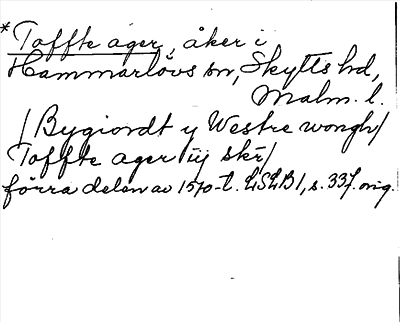 * Toffte ager, åker i
Hammarlövs sn, Skytts hd,
Malm. l.
/Bygiordt y Westre wongh/
Toffte ager iij skr/
förra delen av 1570-t. LSLB1, s. 337. orig.